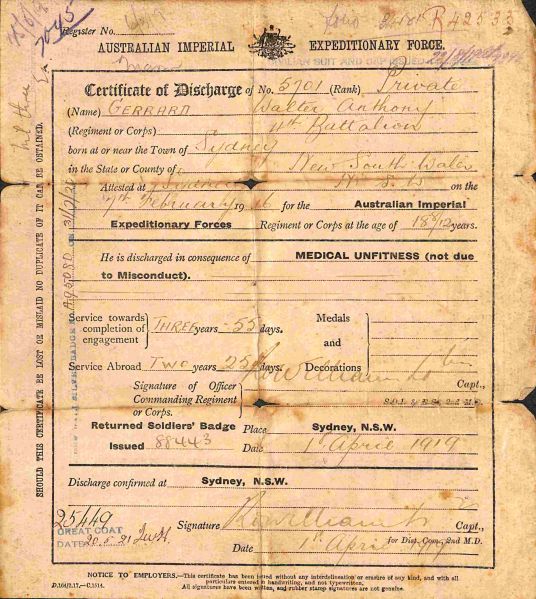 Register No. 7045
R42533
AUSTRALIAN IMPERIAL EXPEDITIONARY FORCE.
Certificate of Discharge of No. 5701 (Rank) Private
(Name) GERRARD Walter Anthony
(Regiment or Corps) 4th Battalion
born at or near the Town of Sydney
in the State or County of New South Wales
Attested at Sydney N.S.W on the
7th February 1916 for the Australian Imperial
Expeditionary Forces Regiment or Corps at the age of 18 /12 years.
He is discharged in consequence of MEDICAL UNFITNESS (not due
to Misconduct).
Service towards completion of engagement THREE years 55 days.
Service Abroad TWO years 25 days.
Medals and Decorations
Signature of Officer Commanding Regiment or Corps. Capt.,
Returned Soldiers' Badge Issued 88443
Place Sydney, N.S.W.
Date 1st April 1919
Discharge confirmed at Sydney, N.S.W.
25449
GREAT COAT
DATE 20.5.21
Signature Capt.,
for Dist. Com., 2nd M.D.
Date 1st April 1919
SHOULD THIS CERTIFICATE BE LOST OR MISLAID NO DUPLICATE OF IT CAN BE OBTAINED.
NOTICE TO EMPLOYERS.—This certificate has been issued without any interdelineation or erasure of any kind, and with all
particulars entered in handwriting, and not typewritten.
All signatures have been written, and rubber stamp signatures are not genuine.